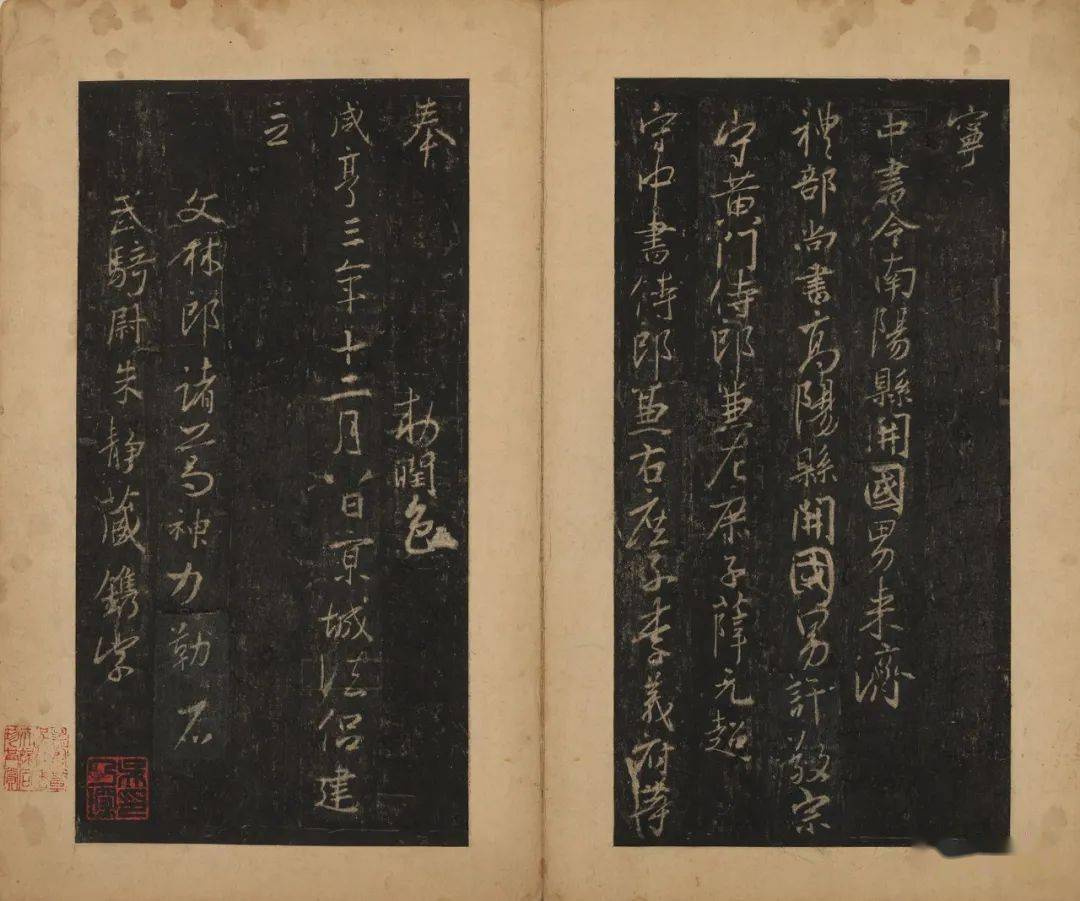 寧
中書令南陽縣開國男来濟
禮部尚書高陽縣開國男許敬宗
守黄門侍郎兼左庶子薛元超
守中書侍郎兼右庶子李義府等
奉
敕潤色
咸亨三年十二月八日京城法侶建
立
文林郎諸葛神力勒石
武騎尉朱靜藏鐫字